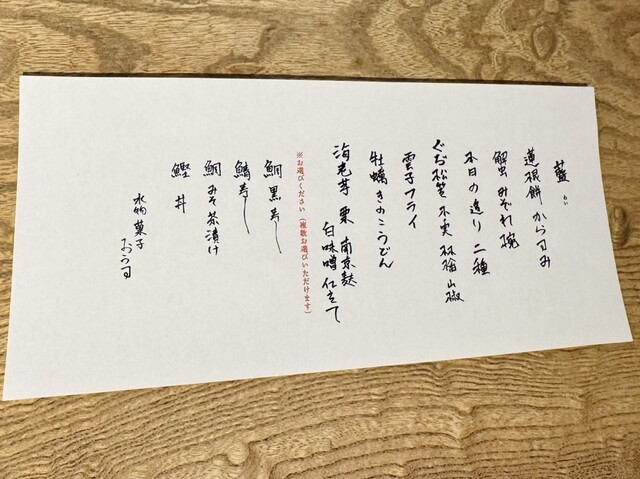 藍
蓮根餅 からすみ
蟹 みぞれ椀
本日の造り 二種
ぐじ松笠 木の実 林檎 山椒
雲子フライ
牡蠣きのこうどん
海老芋 栗 南京麩
白味噌仕立て
※お選びください(複数お選びいただけます)
鯛 黒寿し
鱧寿し
鯛みそ茶漬け
鰹丼
水物 菓子
おうす